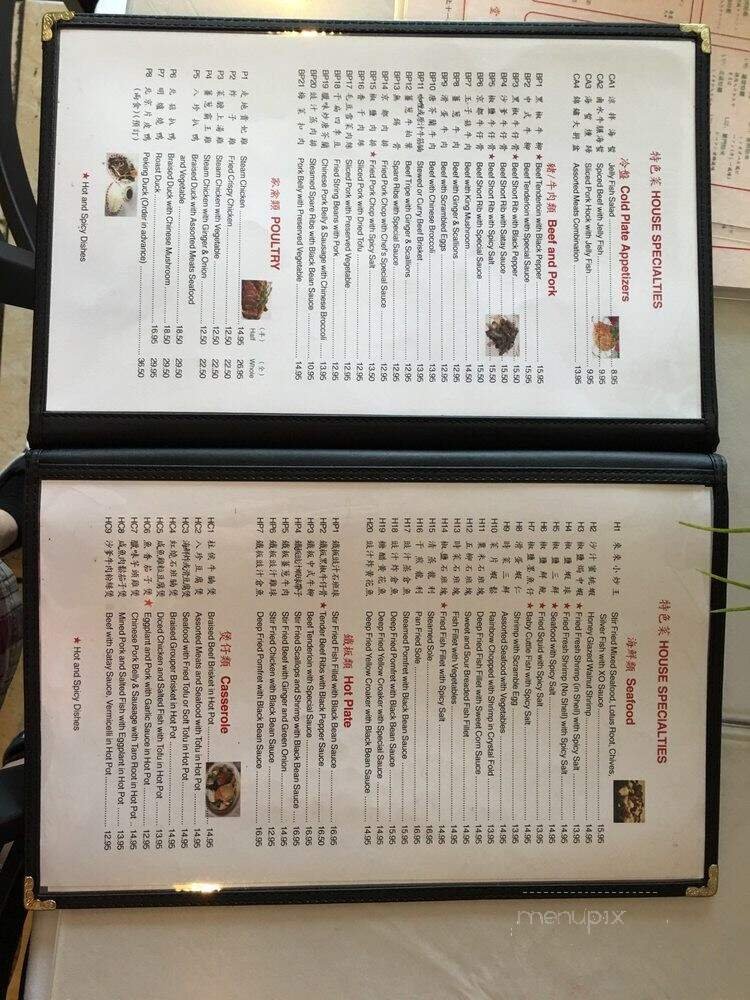 特色菜 HOUSE SPECIALTIES
冷盤 Cold Plate Appetizers
CA1 涼拌海蜇 Jelly Fish Salad 8.95
CA2 Spiced Beef with Jelly Fish 9.95
CA3 海蜇 Sliced Pork Hock with Jelly Fish 9.95
CA4 Assorted Meats Combination 13.95
豬/牛肉類 Beef and Pork
BP1 黑椒牛柳 ★ Beef Tenderloin with Black Pepper 15.95
BP2 中式牛柳 Beef Tenderloin with Special Sauce 15.95
BP3 黑椒牛仔骨 ★ Beef Short Rib with Black Pepper 15.50
BP4 沙爹牛仔骨 ★ Beef Short Rib with Satay Sauce 15.50
BP5 椒鹽牛仔骨 ★ Beef Short Rib with Spicy Salt 15.50
BP6 京都牛仔骨 Beef Short Rib with Special Sauce 15.50
BP7 王子菇牛肉 Beef with King Mushroom 14.50
BP8 薑蔥牛肉 Beef with Ginger & Scallions 12.95
BP9 滑蛋牛肉 Beef with Scrambled Eggs 12.95
BP10 芥蘭牛肉 Beef with Chinese Broccoli 12.95
BP11 Stewed or Curry Beef Brisket 13.95
BP12 薑蔥牛柏葉 Beef Tripe with Ginger & Scallions 12.95
BP13 Spare Ribs with Special Sauce 12.95
BP14 京都肉排 Fried Pork Chop with Chef's Special Sauce 13.50
BP15 椒鹽肉排 ★ Fried Pork Chop with Spicy Salt 13.50
BP16 香干肉絲 Sliced Pork with Dried Tofu 12.95
BP17 毛豆雪菜肉絲 Sliced Pork with Preserved Vegetable 12.95
BP18 干扁四季豆 Fried String Beans with Pork 12.95
BP19 臘味炒唐芥蘭 Chinese Pork Belly & Sausage with Chinese Broccoli 13.95
BP20 豉汁蒸肉排 Steamed Spare Ribs with Black Bean Sauce 10.95
BP21 梅菜扣肉 Pork Belly with Preserved Vegetable 14.95
家禽類 POULTRY
(半) Half (全) Whole
P1 走地貴妃雞 Steam Chicken 14.95 26.95
P2 炸子雞 Fried Crispy Chicken 12.50 22.50
P3 菜膽上湯雞 Steam Chicken with Vegetable 12.50 22.50
P4 薑蔥霸王雞 Steam Chicken with Ginger & Onion 12.50 22.50
P5 八珍扒鴨 Braised Duck with Assorted Meats Seafood
and Vegetable 18.50 29.50
P6 北菇扒鴨 Braised Duck with Chinese Mushroom 18.50 29.50
P7 明爐燒鴨 Roast Duck 16.95 29.95
P8 北京片皮鴨 Peking Duck (Order in advance) 36.50
(兩食)(預訂)
★ Hot and Spicy Dishes
特色菜 HOUSE SPECIALTIES
海鮮類 Seafood
H1 小炒王 Stir Fried Mixed Seafood, Lotus Root, Chives,
Silver Fish with XO Sauce 15.95
H2 沙汁蜜桃蝦 Honey Glazed Walnut Shrimp 14.95
H3 椒鹽焗中蝦 ★ Fried Fresh Shrimp (in Shell) with Spicy Salt 13.95
H4 椒鹽蝦球 ★ Fried Fresh Shrimp (No Shell) with Spicy Salt 14.95
H5 椒鹽三鮮 ★ Seafood with Spicy Salt 14.95
H6 椒鹽鮮魷 ★ Fried Squid with Spicy Salt 13.95
H7 椒鹽墨魚仔 ★ Baby Cuttle Fish with Spicy Salt 14.95
H8 滑蛋蝦仁 Shrimp with Scramble Egg 13.95
H9 時菜三鮮 Assorted Seafood with Vegetables 14.95
H10 菜片蝦鬆 Rainbow Chopped with Shrimp in Crystal Fold 13.95
H11 粟米石斑塊 Deep Fried Fish Fillet with Sweet Corn Sauce 14.95
H12 五柳石斑塊 Sweet and Sour Breaded Fish Fillet 14.95
H13 時菜石斑塊 Fish Fillet with Vegetables 14.95
H14 椒鹽石斑塊 ★ Fried Fish Fillet with Spicy Salt 14.95
H15 清蒸龍利 Steamed Sole 16.95
H16 干煎龍利 Pan Fried Sole 16.95
H17 豉汁蒸倉魚 Steamed Pomfret with Black Bean Sauce 15.95
H18 豉汁炸倉魚 Deep Fried Pomfret with Black Bean Sauce 15.95
H19 糖醋黃花魚 Deep Fried Yellow Croaker with Special Sauce 14.95
H20 豉汁炸黃花魚 Deep Fried Yellow Croaker with Black Bean Sauce 14.95
鐵板類 Hot Plate
HP1 鐵板豉汁石斑球 Stir Fried Fish Fillet with Black Bean Sauce 16.95
HP2 鐵板黑椒牛仔骨 ★ Tender Beef Ribs with Black Pepper Sauce 16.50
HP3 鐵板中式牛柳 Beef Tenderloin with Special Sauce 16.95
HP4 Stir Fried Scallops and Shrimp with Black Bean Sauce 16.95
HP5 鐵板薑蔥牛肉 Stir Fried Beef with Ginger and Green Onion 14.95
HP6 鐵板豉汁雞球 Stir Fried Chicken with Black Bean Sauce 12.95
HP7 鐵板豉汁倉魚 Deep Fried Pomfret with Black Bean Sauce 16.95
煲仔類 Casserole
HC1 柱侯牛腩煲 Braised Beef Brisket in Hot Pot 14.95
HC2 八珍豆腐煲 Assorted Meats and Seafood with Tofu in Hot Pot 14.95
HC3 Seafood with Fried Tofu or Soft Tofu in Hot Pot 14.95
HC4 紅燒石斑球煲 Braised Grouper Brisket in Hot Pot 14.95
HC5 咸魚雞粒豆腐煲 Diced Chicken and Salted Fish with Tofu in Hot Pot 13.95
HC6 魚香茄子煲 ★ Eggplant and Pork with Garlic Sauce in Hot Pot 12.95
HC7 臘味芋頭雞煲 Chinese Pork Belly & Sausage with Taro Root in Hot Pot 14.95
HC8 咸魚肉鬆茄子煲 Mined Pork and Salted Fish with Eggplant in Hot Pot 13.95
HC9 沙爹牛肉粉絲煲 Beef with Satay Sauce, Vermicelli in Hot Pot 12.95
★ Hot and Spicy Dishes
menupix